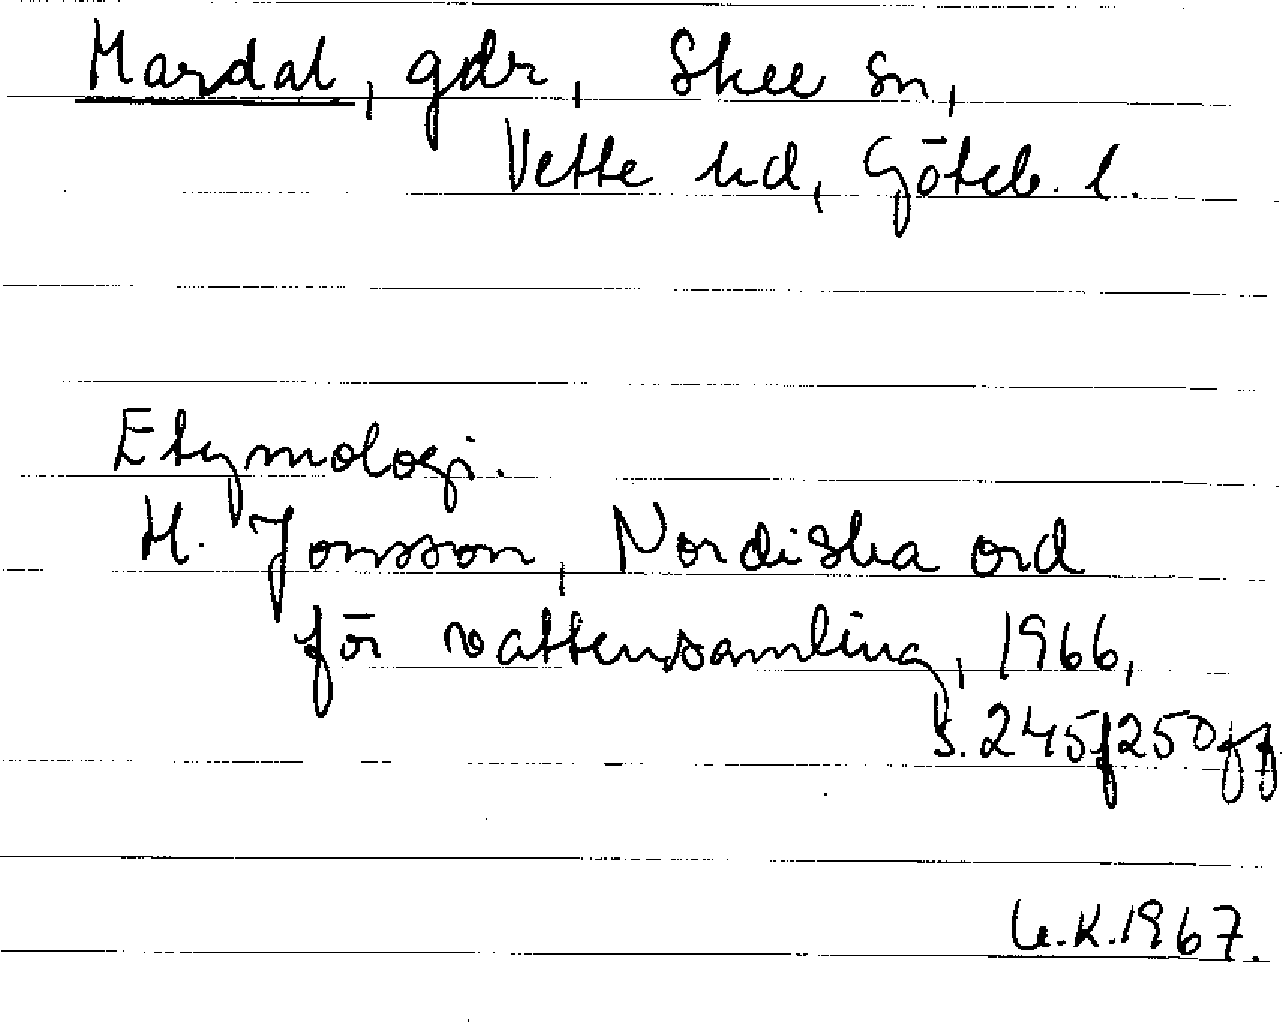 Mardal, gdr, Skee sn,
Vette hd, Göteb. l.
Etymologi.
H. Jonsson, Nordiska ord
för vattensamling, 1966,
s. 245f250ff
K.1967.